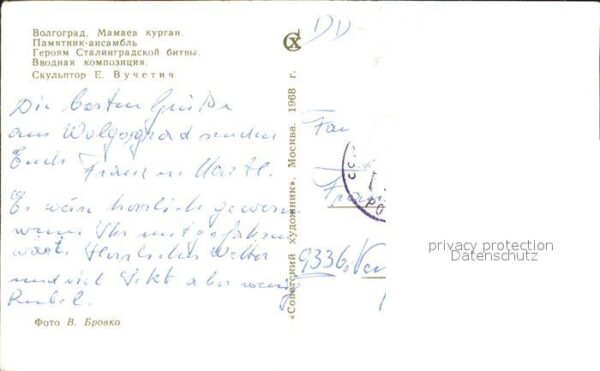 Волгоград. Мамаев курган.
Памятник-ансамбль
Героям Сталинградской битвы.
Вводная композиция.
Скульптор Е. Вучетич
Die besten Grüße
aus Wolgograd senden
Euch Franz u.
Es wäre herrlich gewesen
wenn Ihr mitgefahren
wärt. Herrliches Wetter
und viel Sekt aber wenig
Rubel.
Фото В. Бровко
«Советский художник». Москва. 1968 г.
DD
9336
privacy protection
Datenschutz